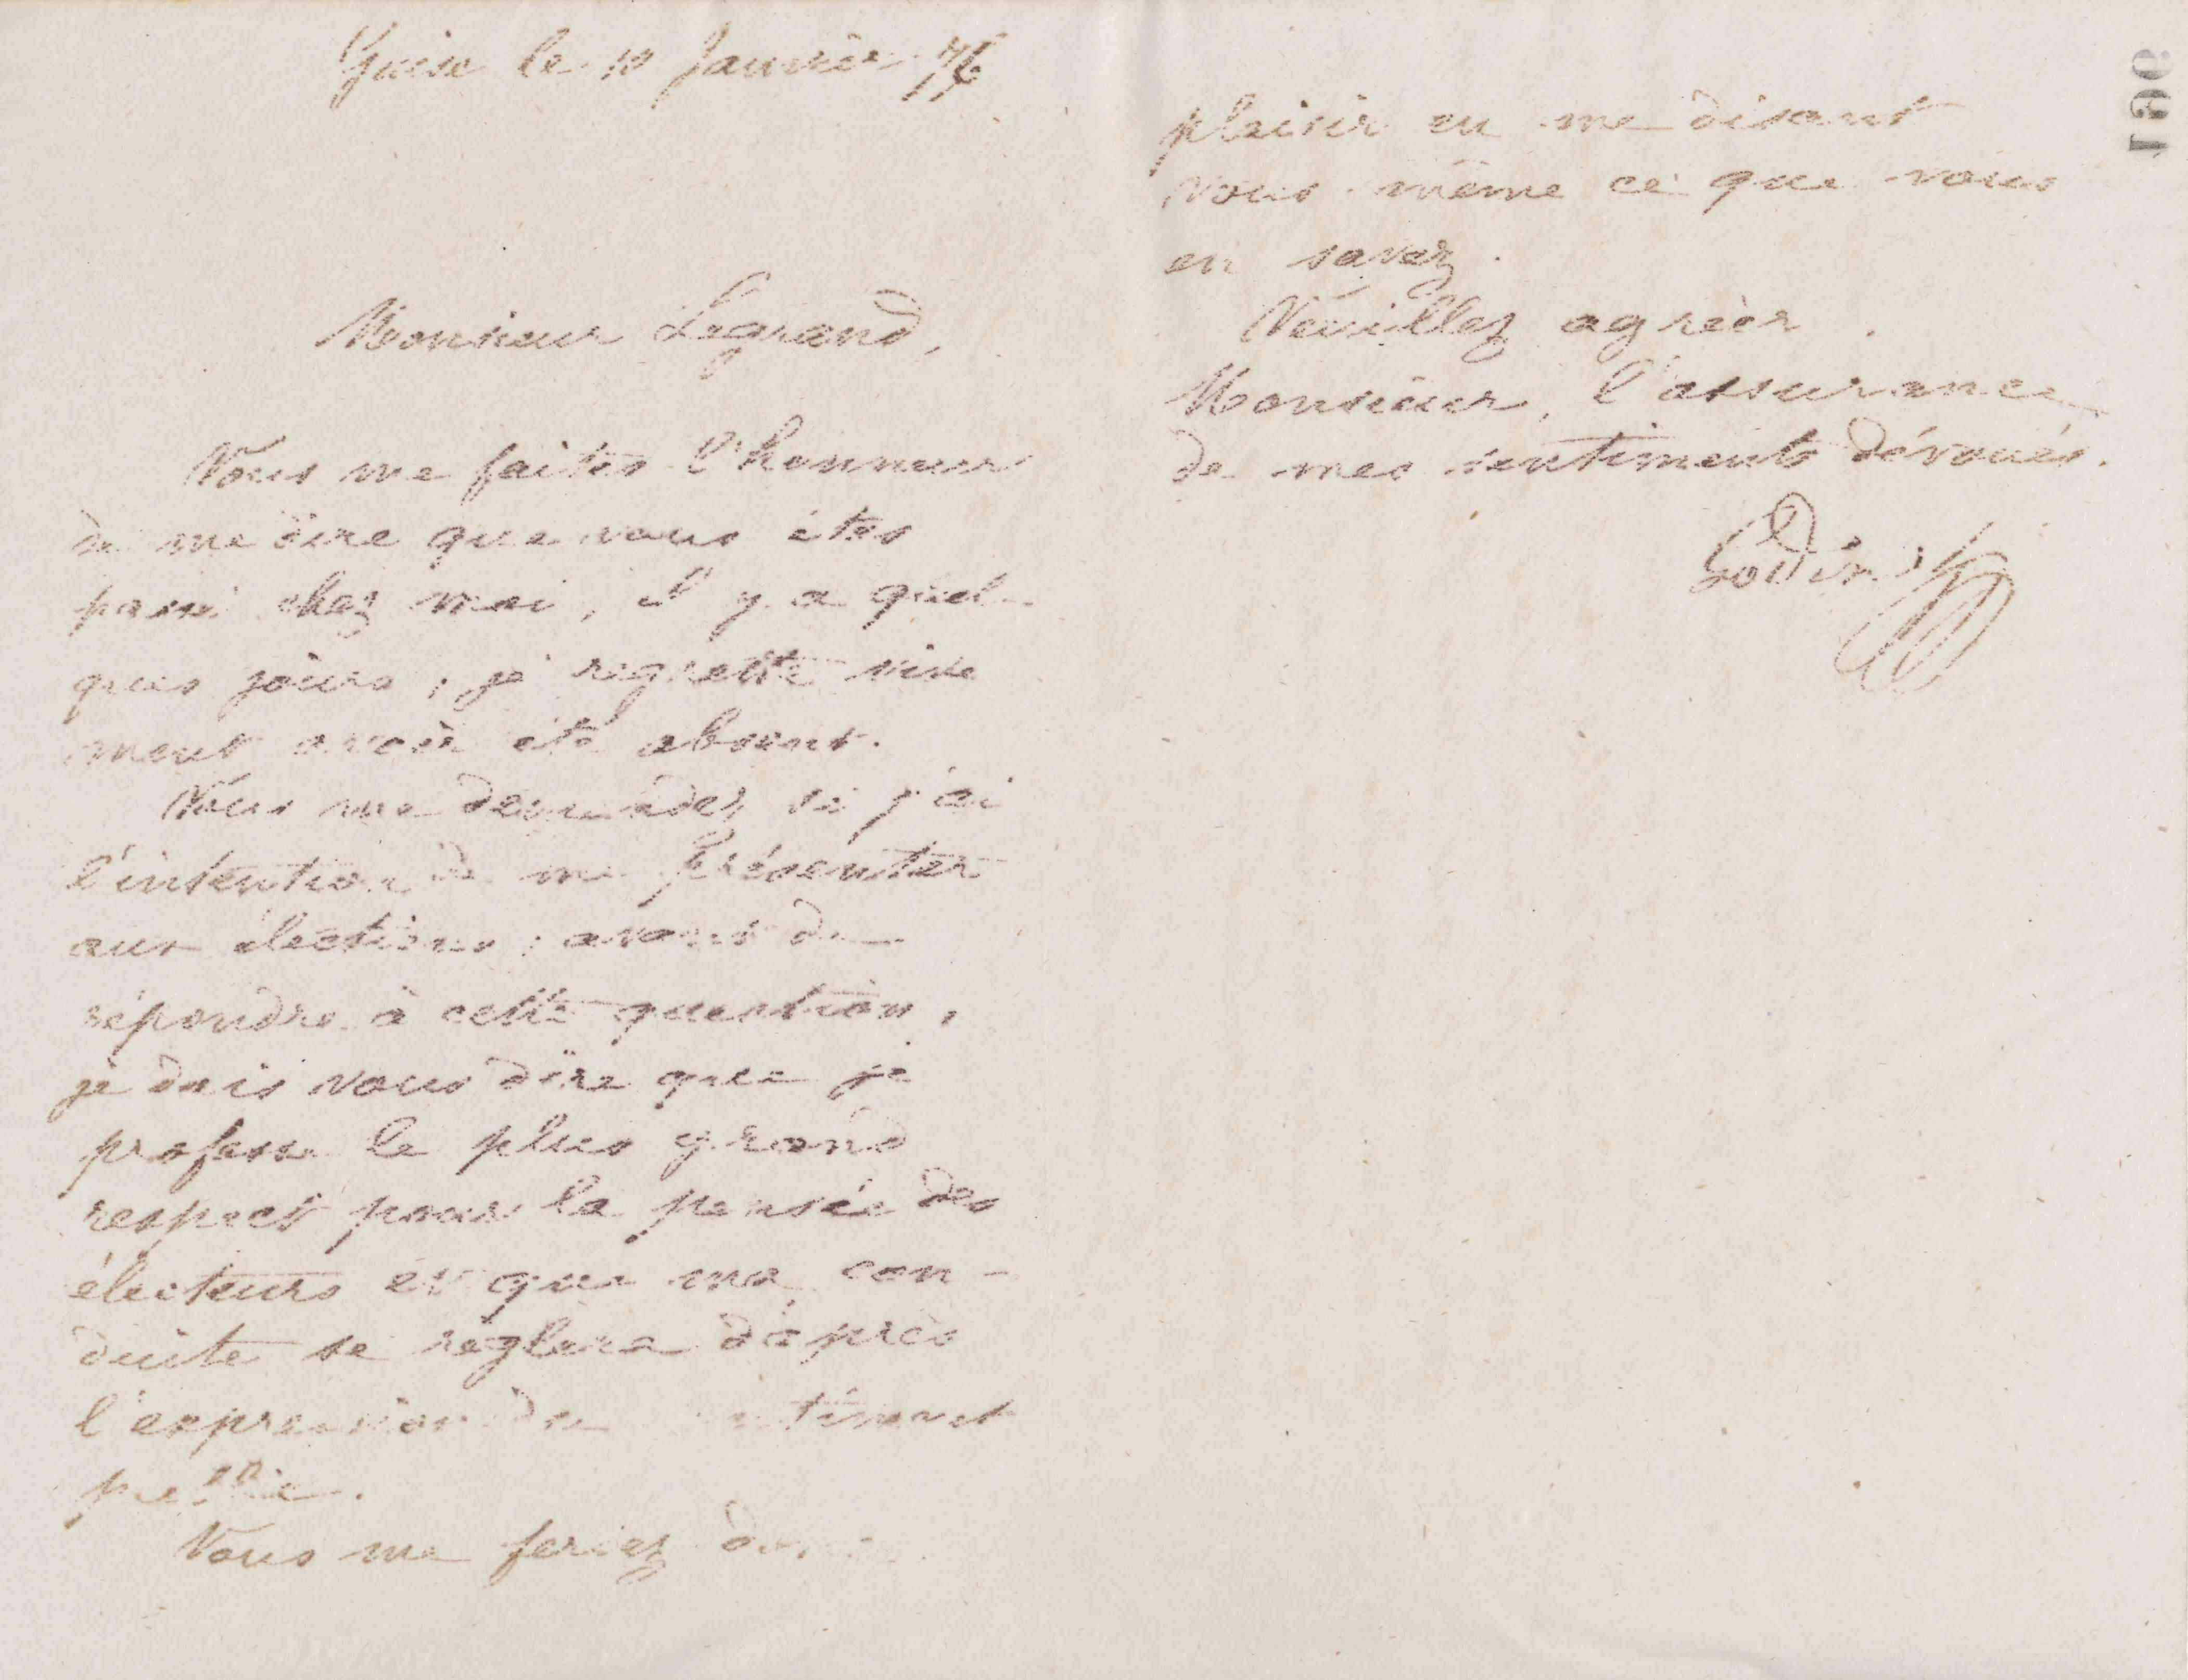 Guise le 10 Janvier 76
Monsieur Legrand,
Vous me faites l'honneur
de me dire que vous êtes
passé chez moi, il y a quel-
ques jours ; je regrette vive
ment avoir été absent.
Vous me demandez si j'ai
l'intention de me présenter
aux élections ; avant de
répondre à cette question,
je dois vous dire que je
professe le plus grand
respect pour la pensée des
électeurs et que ma con-
duite se réglera d'après
l'expression de
Vous me feriez donc
plaisir en me disant
vous même ce que vous
en savez.
Veuillez agréer
Monsieur, l'assurance
de mes sentiments dévoués.
Godin